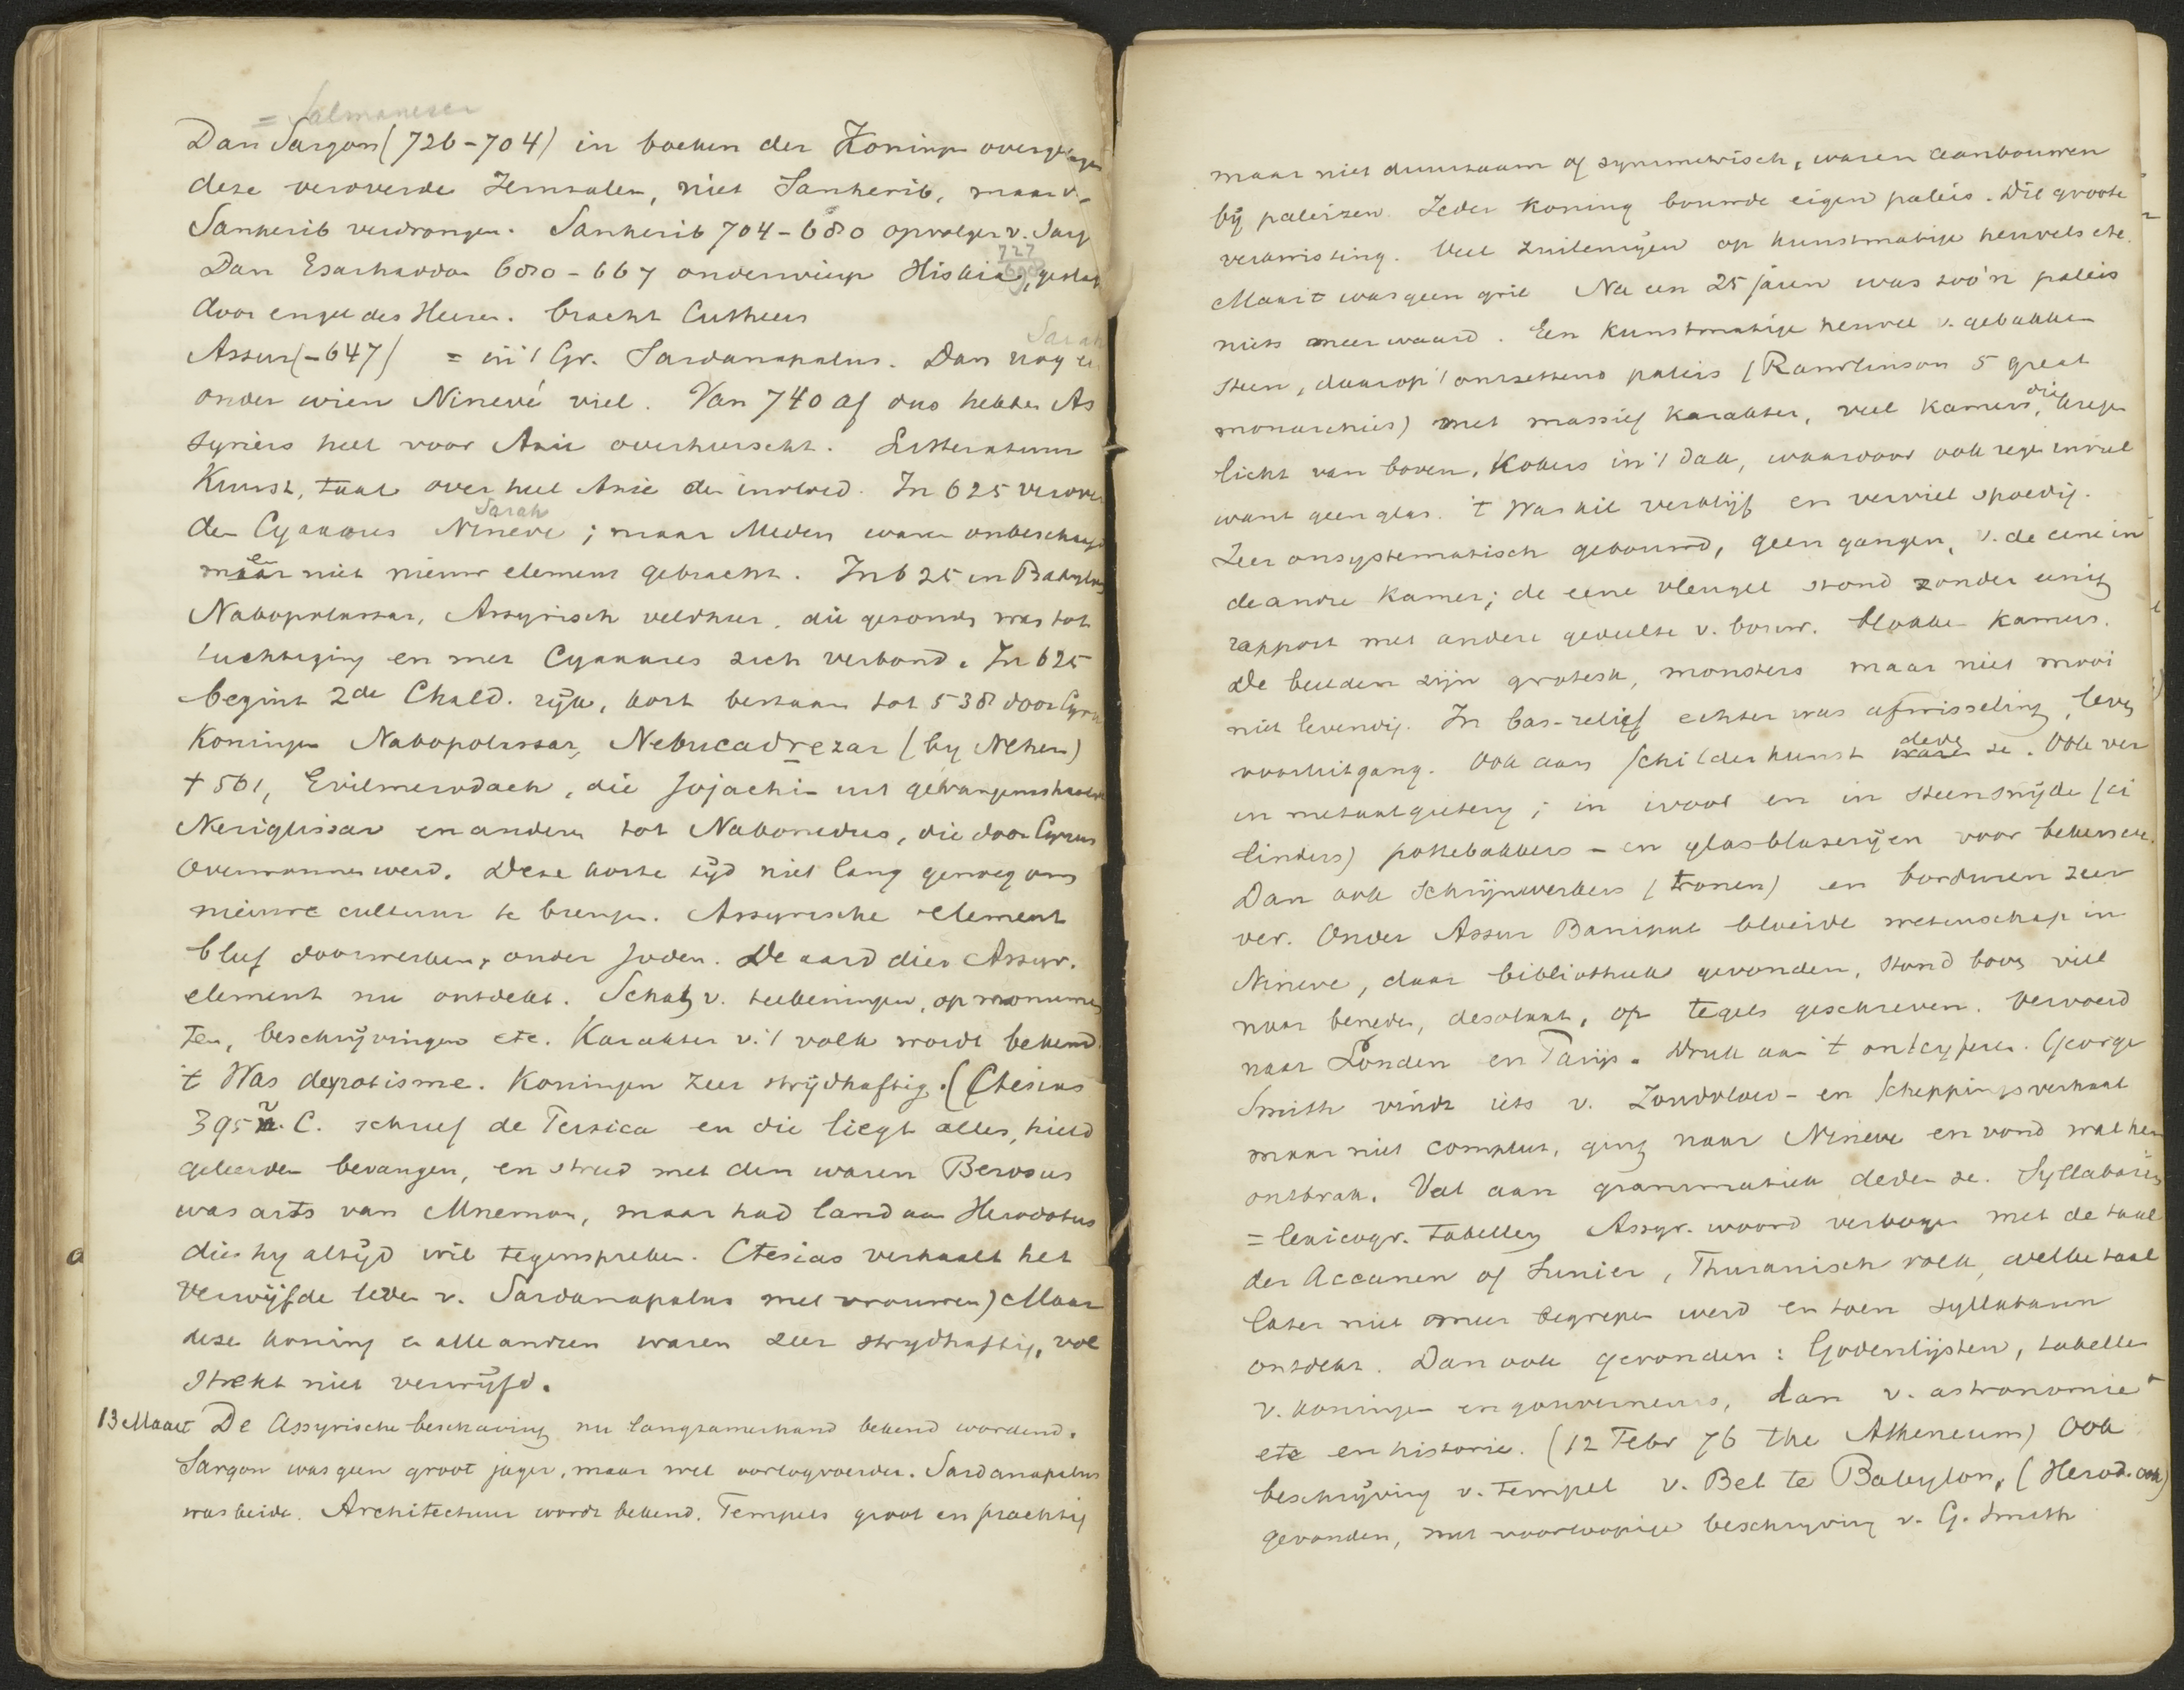 = Salmaneser
Dan Sargon (726-704) in boeken der Koningen overge
deze veroverde Jerusalem, niet Sanherib, maar v.
Sanherib verdrongen. Sanherib 704-680 opvolger v. Sarg
727
698
Dan Esarhaddon 680-667 onderwierp Hiskia, gesla
door engel des Heeren. bracht Cutheers
Sarak
Assur (-647) = in 't Gr. Sardanapalus. Dan nog e
onder wien Ninevé viel. Van 740 af dus hebben As
syriers heel voor Azie overheerscht. Litteratuur
Kunst, taal over heel Azie den invloed. In 625 verover
Sarak
de Cyaxares Nineve; maar Meden waren onbeschaafd
en niet nieuw element gebracht. In 625 in Babylon
Nabopolassar, Assyrisch veldheer, die gezonden was tot
tuchtiging en met Cyaxares zich verbond. In 625
begint 2de Chald. rijk, kort bestaan tot 538 door Cyrus
Koningen Nabopolassar, Nebucadrezar (by Nehem)
† 561, Evilmerodach, die Jojachin uit gevangenis
Neriglissar en andere tot Nabonedus, die door Cyrus
overwonnen werd. Deze korte tijd niet lang genoeg om
nieuwe cultuur te brengen. Assyrische element
bleef doorwerken, onder Joden. De aard dier Assyr.
element nu ontdekt. Schat v. teekeningen, op monumen
ten, beschrijvingen etc. Karakter v. 't volk wordt bekend.
't Was despotisme. Koningen zeer strijdhaftig. (Ctesias
395 v. C. schreef de Persica en die liegt alles, hield
geleerden bevangen, en streed met den waren Berosus
was arts van Mnemon, maar had land aan Herodotus
dien hy altijd wil tegenspreken. Ctesias verhaalt het
verwijfde leven v. Sardanapalus met vrouwen) Maar
deze koning en alle andren waren zeer strydhaftig, vol
strekt niet verwijfd.
13 Maart De Assyrische beschaving nu langzamerhand bekend wordend.
Sargon was geen groot jager, maar wel oorlogvoerder. Sardanapalus
was beide. Architectuur wordt bekend. Tempels groot en prachtig
maar niet duurzaam of symmetrisch, waren aanbouwen
bij paleizen. Ieder koning bouwde eigen paleis. Dit groote
verwoisting. Veel zuilenrijen op kunstmatige heuvels etc.
Maar 't was geen gril Na een 25 jaren was zoo'n paleis
niets meer waard. Een kunstmatige heuvel v. gebakken
steen, daarop 't ontzettend paleis (Rawlinson 5 great
monarchies) met massief karakter, veel kamers, die kregen
licht van boven, kokers in 't dak, waardoor ook regen inviel
want geen glas. 't Was kil verblijf en verviel spoedig.
Zeer onsystematisch gebouwd, geen gangen, v. de eene in
de andre kamer; de eene vleugel stond zonder eenig
rapport met andere gedeelte v. bouw. blokken kamers.
De beelden zijn grotesk, monsters maar niet mooi
niet levendig. In bas-relief echter was afwisseling, leven
vooruitgang. Ook aan schilderkunst deden ze. Ook ver
in metaalgietery; in ivoor en in steensnijde (ci
linders) pottebakkers - en glasblazerijen voor bekers etc.
Dan ook schrijnwerkers (tronen) en borduren zeer
ver. Onder Assur Banipal bloeide wetenschap in
Nineve, daar bibliotheek gevonden, stond boven viel
naar beneden, desolaat, op tegels geschreven. Vervoerd
naar Londen en Parijs. Druk aan 't ontcyferen. George
Smith vindt iets v. Zondvloed- en Scheppingsverhaal
maar niet compleet, ging naar Nineve en vond wat hem
ontbrak. Veel aan grammatica deden ze. Syllabarien
= lexicogr. tabellen Assyr. woord verbogen met de taal
der Accaden of Sumier, Thuranisch volk, welke taal
later niet meer begrepen werd en toen syllabaren
ontdekt. Dan ook gevonden: Godenlijsten, tabellen
v. koningen en gouverneurs, dan v. astronomie
etc en historie. (12 Febr 76 the Atheneum) Ook
beschrijving v. tempel v. Bel te Babylon, (Herod. ook)
gevonden, met voorloopige beschryving v. G. Smith